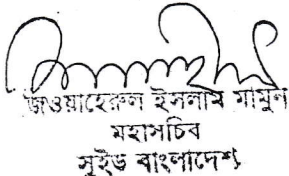 জওয়াহেরুল ইসলাম মামুন
মহাসচিব
সুইড বাংলাদেশ